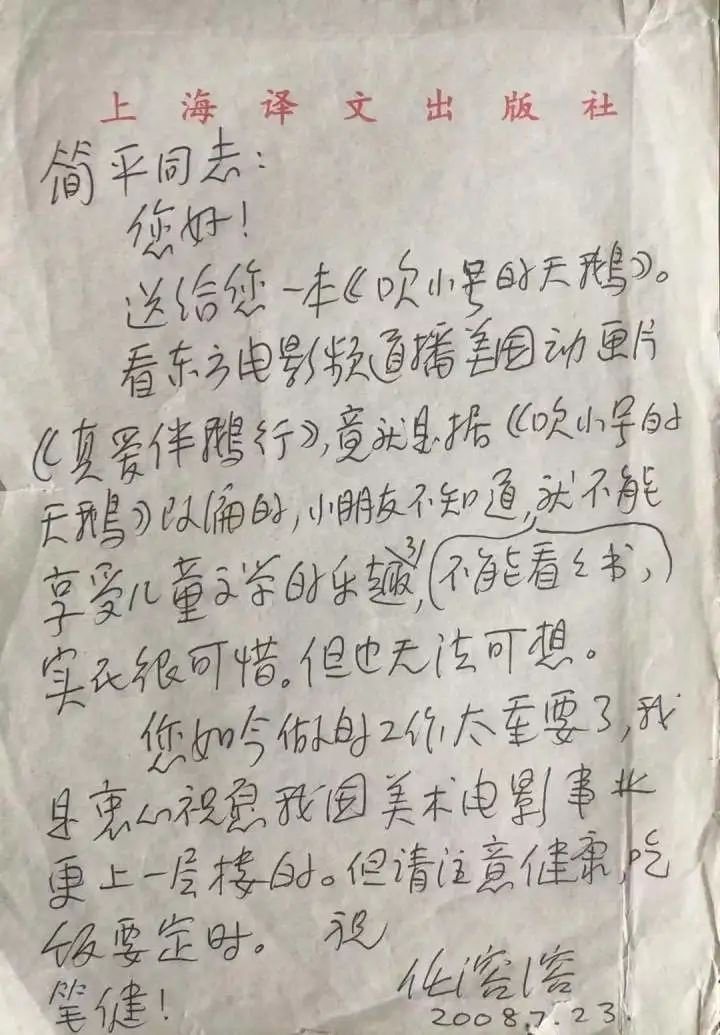 上海译文出版社
简平同志：
您好！
送给您一本《吹小号的天鹅》。
看东方电影频道播美国动画片
《真爱伴鹅行》，竟就是据《吹小号的
天鹅》改编的，小朋友不知道，就不能
享受儿童文学的乐趣了，（不能看这书，）
实在很可惜。但也无法可想。
您如今做的工作太重要了，我
是衷心祝愿我国美术电影事业
更上一层楼的。但请注意健康，吃
饭要定时。 祝
笔健！
任溶溶
2008.7.23.